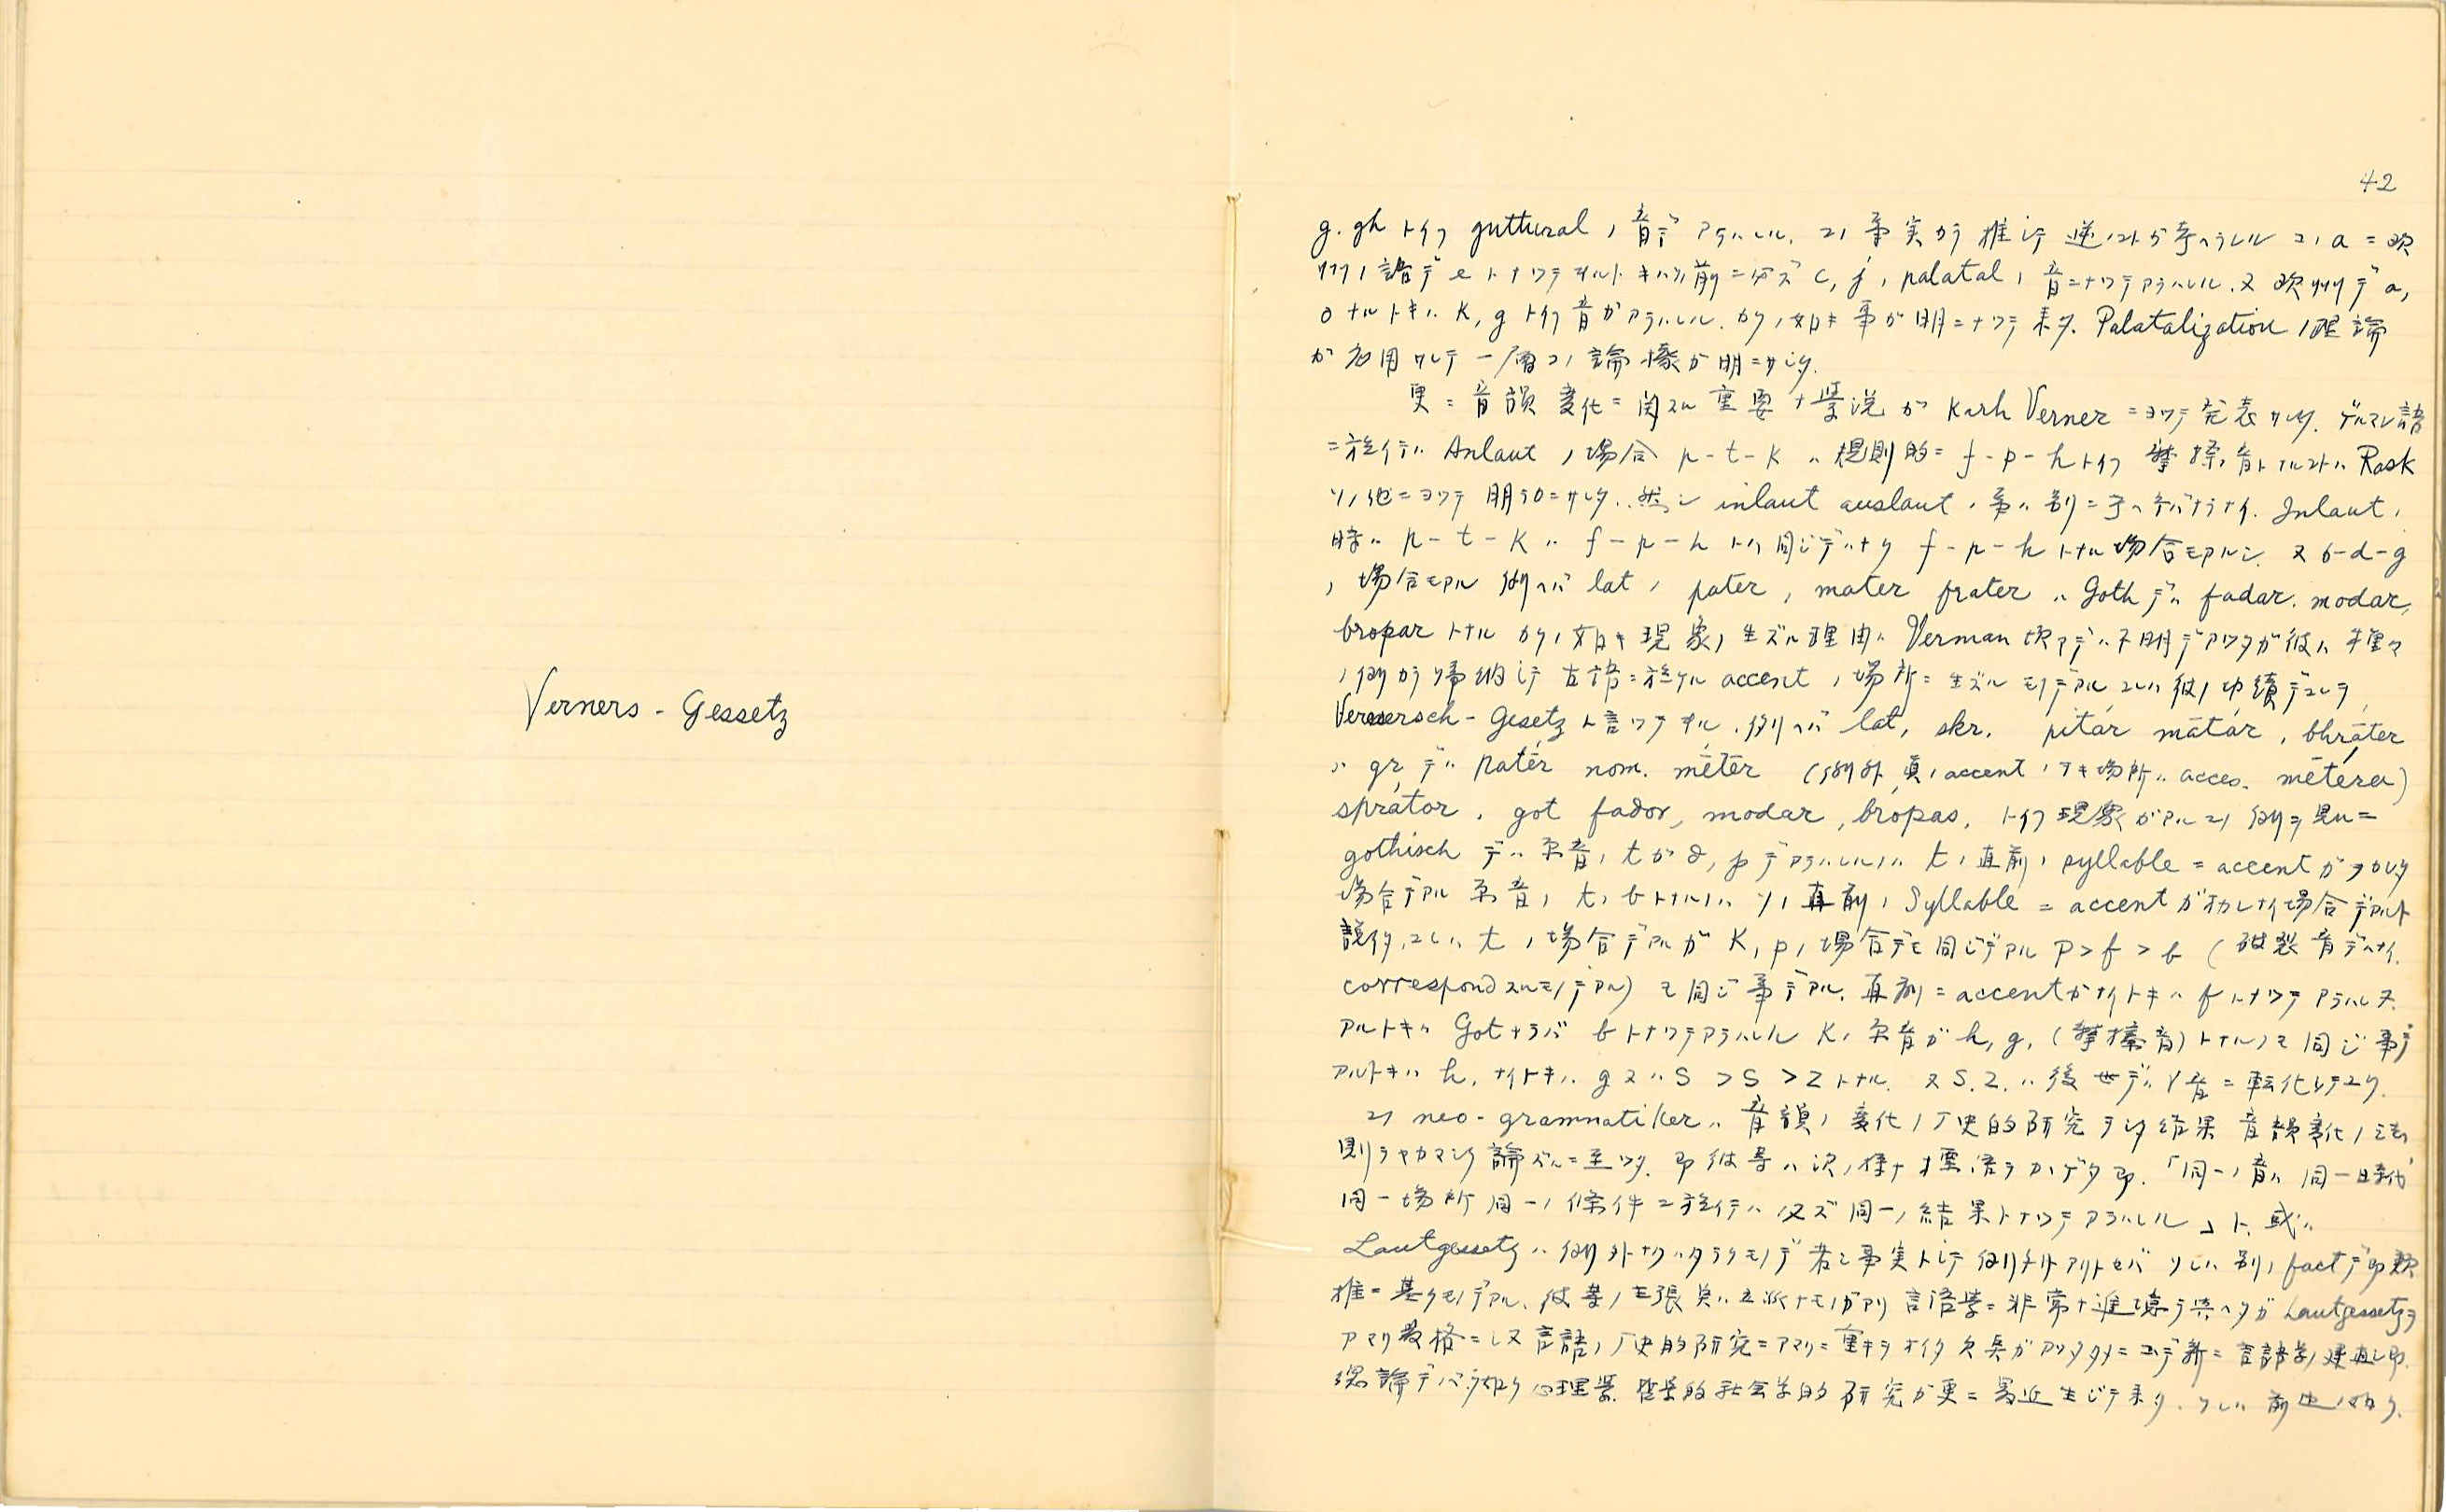 Verners - Gessetz
42
g. gh トイフ guttural ノ音デアラハレル. コノ事実カラ推シテ逆ノコトガ考ヘラレル コノ a ニ欧
州ノ語デ e トナツテヰルトキハソノ前ニ必ズ c, j, palatal ノ音ニナツテアラハレル. 又欧州デ a,
o ナルトキハ K, g トイフ音ガアラハレル. カクノ如キ事ガ明ニナツテ来タ. Palatalization ノ理論
ガ応用サレテ一層コノ論拠ガ明ニサレタ.
更ニ音韻変化ニ関スル重要ナ学説ガ Karh Verner ニヨツテ発表サレタ. ゲルマン語
ニ於イテハ Anlaut ノ場合 p - t - k ハ規則的ニ f - p - h トイフ摩擦音トナルコトハ Rask
ソノ他ニヨツテ明ラカニサレタ. 然シ inlaut auslaut ノ事ハ別ニ考ヘネバナラナイ. Inlaut ノ
時ハ p - t - K ハ f - p - h トハ同ジデハナク f - p - h トナル場合モアルシ. 又 b - d - g
ノ場合モアル 例ヘバ lat ノ pater, mater frater ハ Goth デハ fadar. modar,
bropar トナル カクノ如キ現象ノ生ズル理由ハ Verman 頃マデハ不明デアツタガ彼ハ種々
ノ例カラ帰納シテ古語ニ於ケル accent ノ場所ニ生ズルモノデアル コレハ彼ノ功績デコレヲ
Vernersch - Gesetz ト言ツテヰル. 例ヘバ lat, skr. pitár mātár, bhráter
ハ gr デハ patér nom. mētēr (例外 真ノ accent ノアキ場所ハ acces. mētéra)
sprátor. got fador, modar, bropas. トイフ現象ガアル コノ例ヲ見ルニ
gothisch デハ 原音 t ガ d, p デアラハレルノハ t ノ直前ノ syllable ニ accent ガヲカレタ
場合デアル 原音ノ t ガ b トナルノハソノ直前ノ Syllable ニ accent ガオカレナイ場合デアルト
説イタ. コレハ t ノ場合デアルガ K, p ノ場合デモ同ジデアル P > f > b (破裂音デハナイ.
correspond スルモノデアル) モ同ジ事デアル. 直前ニ accent ガナイトキハ f トナツテアラハレ又
アルトキハ Got ナラバ b トナツテアラハレル K ノ原音ガ h, g, (摩擦音) トナルノモ同ジ事デ
アルトキハ h, ナイトキハ g 又ハ S > S > Z トナル. 又 S. Z. ハ後世デハ r 音ニ転化シテユク.
コノ neo - grammatiker ハ音韻ノ変化ノ厂史的研究ヲシタ結果音韻変化ノ法
則ヲヤカマシク論ズルニ至ツタ. 即彼等ハ次ノ様ナ標語ヲカゲタ即. 「同一ノ音ハ同一時代
同一場所同一ノ条件ニ於イテハ必ズ同一ノ結果トナツテアラハレル」ト. 或ハ
Lautgesetz ハ例外ナクハタラクモノデ若シ事実トシテ例外アリトセバソレハ別ノ fact デ即類
推ニ基クモノデアル. 彼等ノ主張 ハ ナモノガアリ言語学ニ非常ナ進境ヲ与ヘタガ Lautgessetz ヲ
アマリ厳格ニシ又言語ノ厂史的研究ニアマリニ重キヲオイタ欠点ガアツタタメニ 新ニ言語学ノ建直シ即
総論デノベタ如ク心理学. 哲学的社会学的研究ガ更ニ最近生ジテ来タ. ソレハ前述ノ如ク.